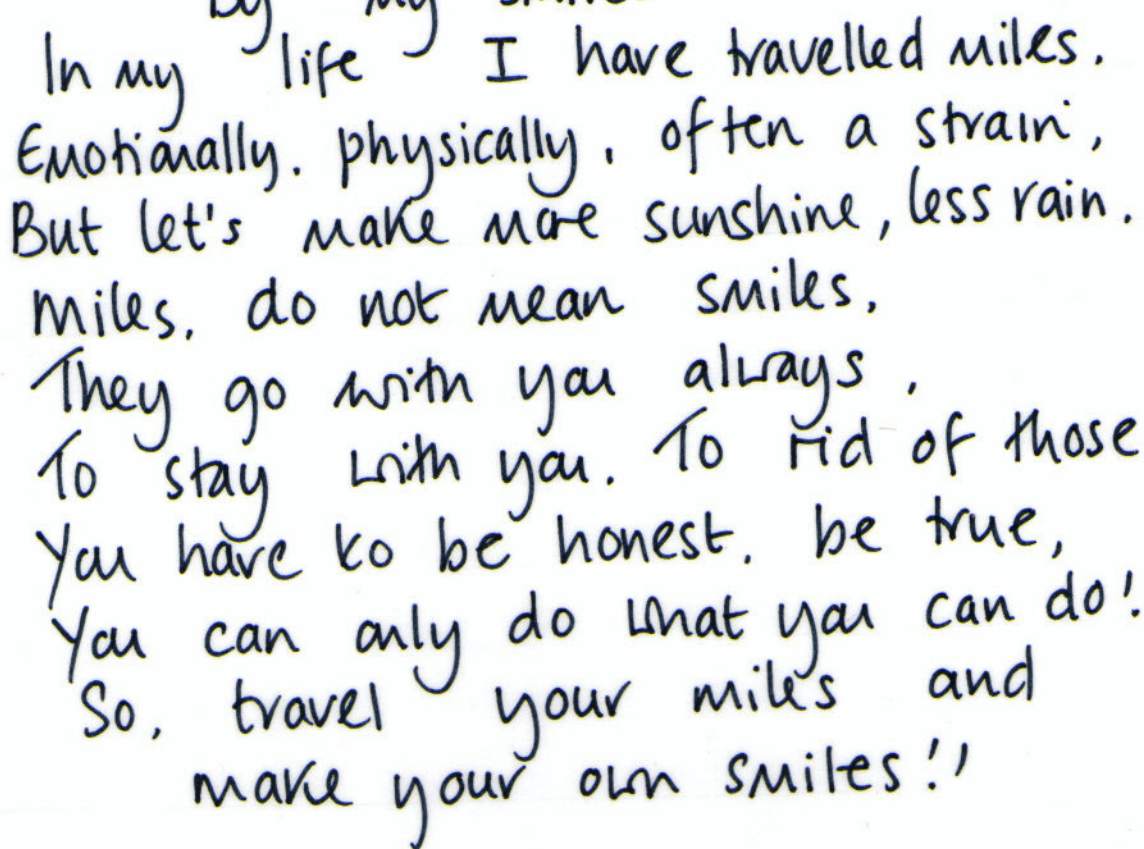 By my smiles
In my life I have travelled miles.
Emotionally. physically, often a strain,
But let's make more sunshine, less rain.
Miles. do not mean smiles,
They go with you always,
To stay with you. To rid of those
You have to be honest. be true,
You can only do what you can do!
So, travel your miles and
make your own smiles!!